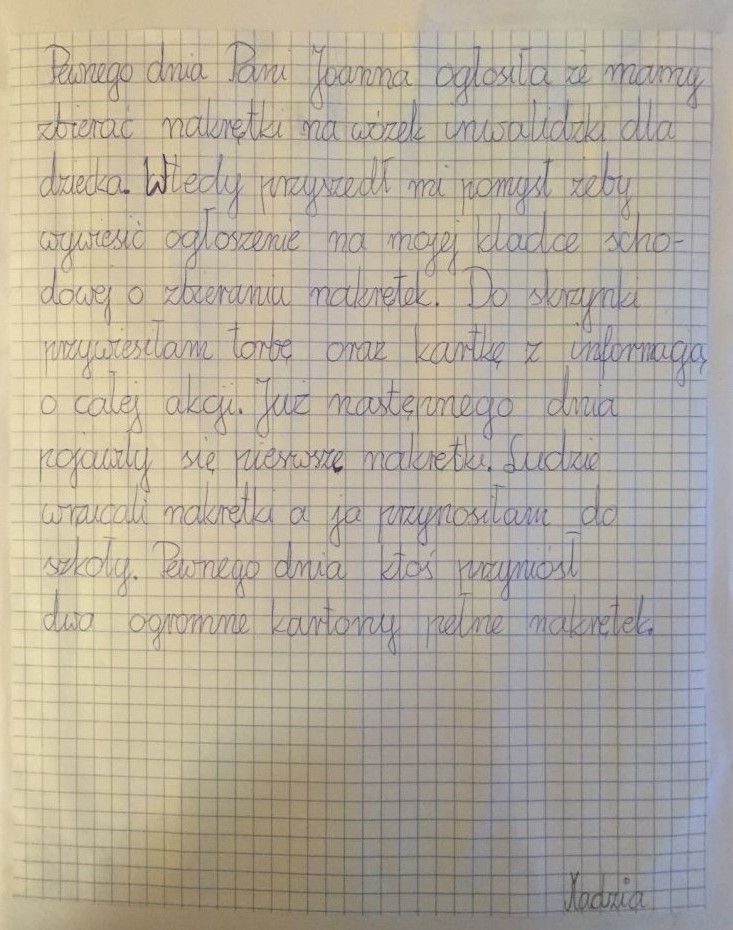 Pewnego dnia Pani Joanna ogłosiła że mamy
zbierać nakrętki na wózek inwalidzki dla
dziecka. Wtedy przyszedł mi pomysł żeby
wywiesić ogłoszenie na mojej kladce scho-
dowej o zbieraniu nakrętek. Do skrzynki
przywiesiłam torbę oraz kartkę z informacją
o całej akcji. Już następnego dnia
pojawiły się pierwsze nakrętki. Ludzie
wrzucali nakrętki a ja przynosiłam do
szkoły. Pewnego dnia ktoś przyniósł
dwa ogromne kartony pełne nakrętek.
Nadzia